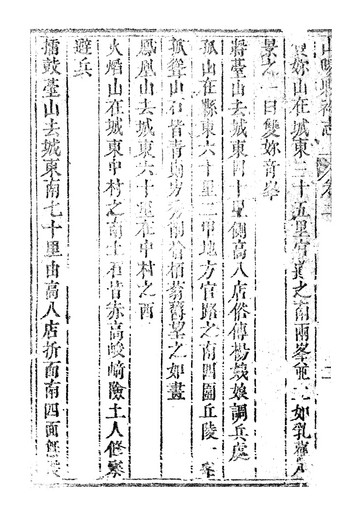 妳山在城東二十五里官道之南兩峯並立如乳舊八
景之一曰雙妳竒峯
將臺山去城東四十里側高八店俗傳楊娘調兵處
孤山在縣東六十里二帶地方官路之南四圍丘陵一峯
孤聳山石皆青四方松柏蓊鬱望之如畫
鳳凰山去城東六十里在中村之西
火焰山在城東中村之南土石皆赤高峻崎險土人修寨
避兵
擂鼓臺山去城東南七十里由高八店折而南四面